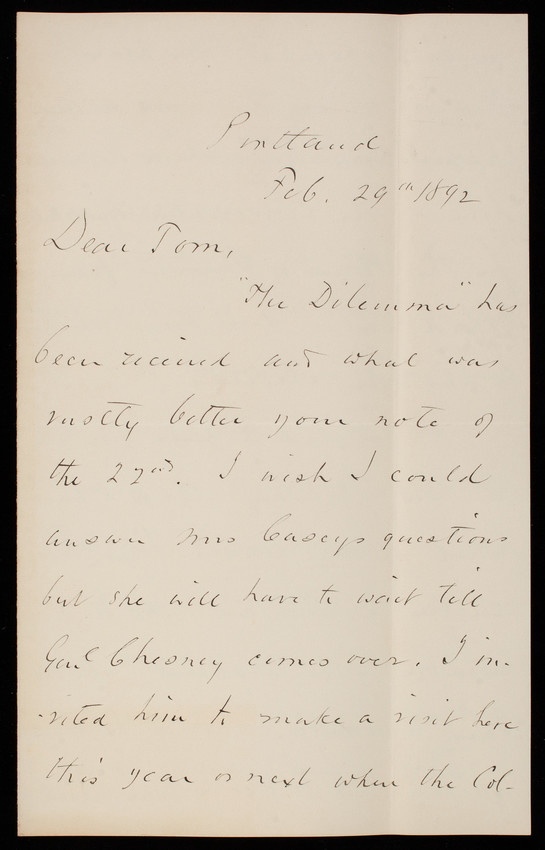 Portland
Feb. 29th 1892
Dear Tom,
"The Dilemma" has
been received and what was
vastly better your note of
the 22nd. I wish I could
answer Mrs Caseys questions
but she will have to wait till
Genl Chesney comes over. I in-
-vited him to make a visit here
this year or next when the Col-